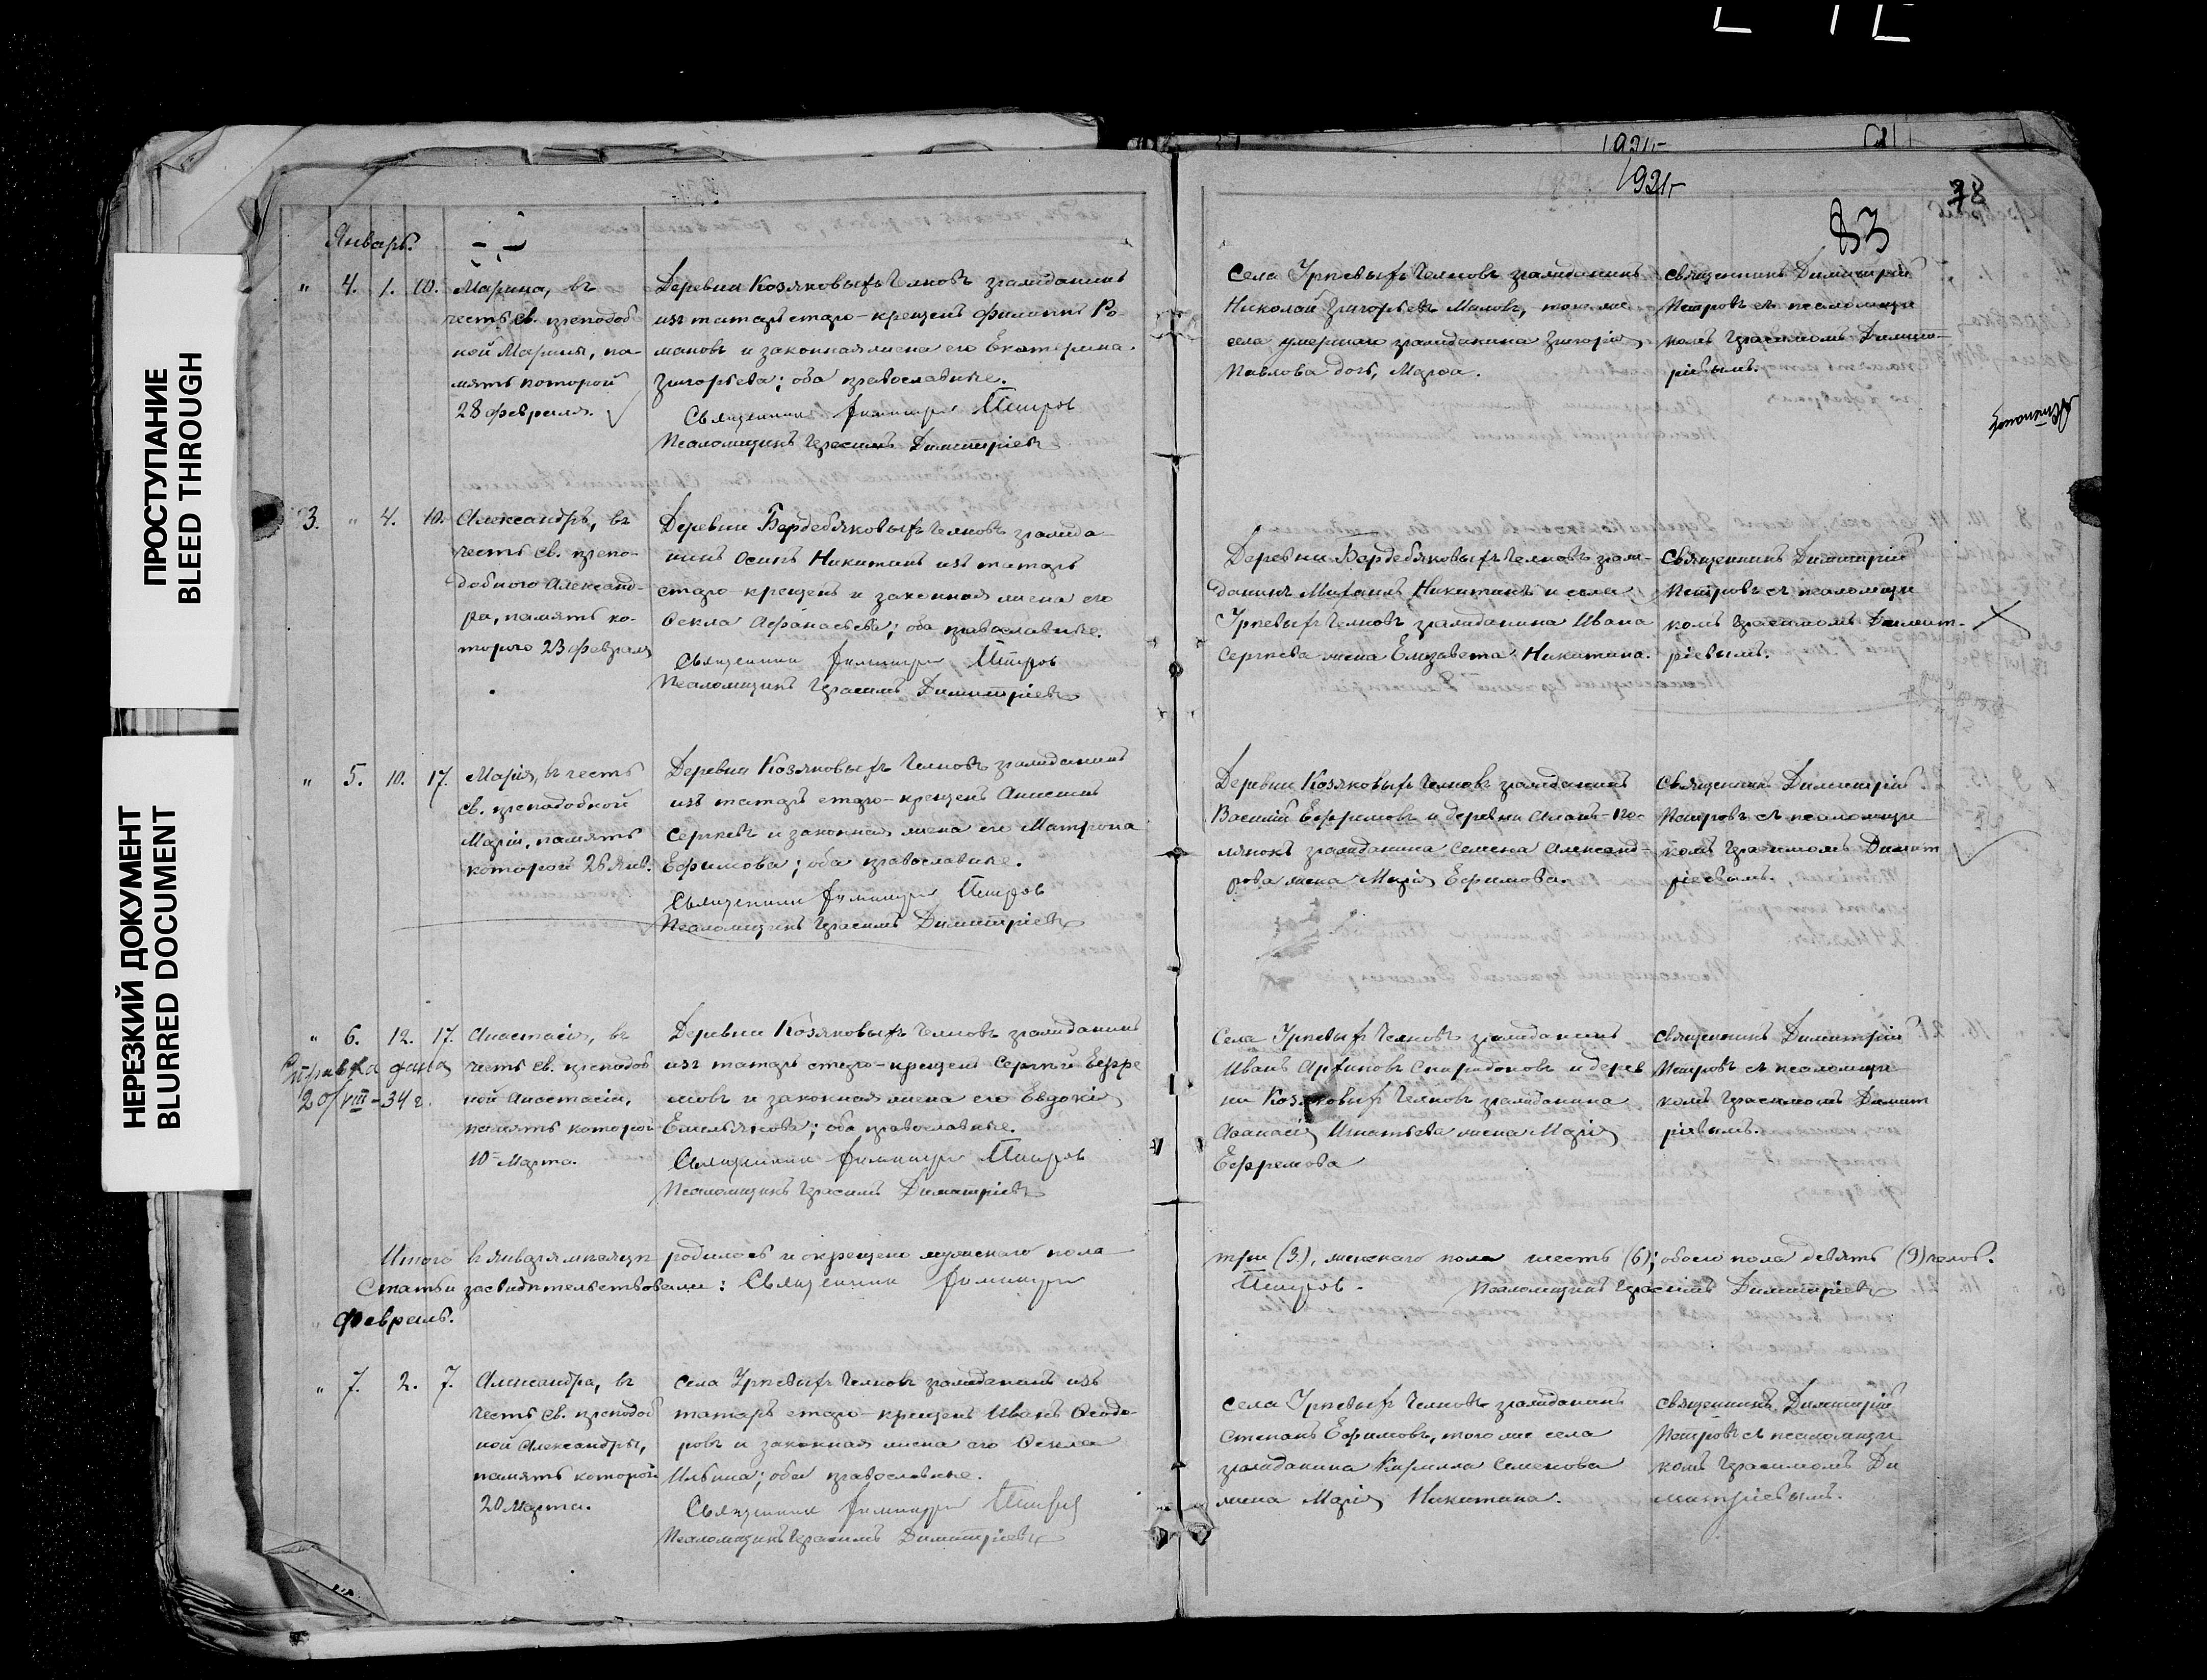 ПРОСТУПАНИЕ
BLEED THROUGH
НЕРЕЗКИЙ ДОКУМЕНТ
BLURRED DOCUMENT
1921
1921
78
83
Январь.
" 4. 1. 10. Марина, въ
честь св. преподоб
ной Марины, па-
мять которой
28 февраля.
Деревни Козяковыхъ Челновъ гражданинъ
изъ татаръ старо-крещенъ Филиппъ Ро-
мановъ и законная жена его Екатерина
Григорьева; оба православные.
Священник Димитрий Петров
Псаломщикъ Герасимъ Димитріевъ
Села Уреевыхъ Челновъ гражданинъ
Николай Григорьевъ, того же
села умершаго гражданина Григорія
Павлова дочь, Марѳа.
Священникъ Димитрій
Петровъ съ псаломщи
комъ Герасимомъ Димит-
ріевымъ.
3. " 4. 10. Александръ, въ
честь св. препо-
добнаго Александ-
ра, память ко-
тораго 23 февраля
Деревни Бердебяковыхъ Челновъ гражда-
нинъ Осипъ Никитинъ изъ татаръ
старо-крещенъ и законная жена его
Ѳекла Аѳанасьева; оба православные.
Священник Димитрий Петров
Псаломщикъ Герасимъ Димитріевъ
Деревни Бердебяковыхъ Челновъ граж-
данинъ Никитинъ и села
Уреевыхъ Челновъ гражданина Ивана
Сергеева жена Елизавета Никитина.
Священникъ Димитрій
Петровъ съ псаломщи
комъ Герасимомъ Димит-
ріевымъ.
" 5. 10. 17. Марія, въ честь
св. преподобной
Маріи, память
которой 26 Янв.
Деревни Козяковыхъ Челновъ гражданинъ
изъ татаръ старо-крещенъ Анисимъ
Сергеевъ и законная жена его Матрона
Ефимова; оба православные.
Священник Димитрий Петров
Псаломщикъ Герасимъ Димитріевъ
Деревни Козяковыхъ Челновъ гражданинъ
Василій Ефремовъ и деревни
гражданина Семена Александ-
рова жена Марія Ефимова.
Священникъ Димитрій
Петровъ съ псаломщи
комъ Герасимомъ Димит
ріевымъ.
" 6. 12. 17. Анастасія, въ
честь св. преподоб
ной Анастасіи,
память которой
10 Марта.
Справка дана
20/VIII-34 г.
Деревни Козяковыхъ Челновъ гражданинъ
изъ татаръ старо-крещенъ Сергѣй Ефре
мовъ и законная жена его Евдокія
Емельянова; оба православные.
Священник Димитрий Петров
Псаломщикъ Герасимъ Димитріевъ
Села Уреевыхъ Челновъ гражданинъ
Иванъ Спиридоновъ и дерев
ни Козяковыхъ Челновъ гражданина
Аѳанасія Игнатьева жена Марія
Ефремова
Священникъ Димитрій
Петровъ съ псаломщи
комъ Герасимомъ Димит
ріевымъ.
Итого въ январѣ мѣсяцѣ родилось и окрещено мужскаго пола три (3), женскаго пола шесть (6); обоего пола девять (9) челов.
Статьи засвидѣтельствовали: Священник Димитрий Петров. Псаломщикъ Герасимъ Димитріевъ
Февраль.
" 7. 2. 7. Александра, въ
честь св. преподоб
ной Александры,
память которой
20 Марта.
Села Уреевыхъ Челновъ гражданинъ изъ
татаръ старо-крещенъ Иванъ Ѳеодо-
ровъ и законная жена его Ѳекла
Ильина; оба православные.
Священник Димитрий Петров
Псаломщикъ Герасимъ Димитріевъ
Села Уреевыхъ Челновъ гражданинъ
Степанъ Ефимовъ, того же села
гражданина Кирилла Семенова
жена Марія Никитина.
Священникъ Димитрій
Петровъ съ псаломщи
комъ Герасимомъ Ди
митріевымъ.